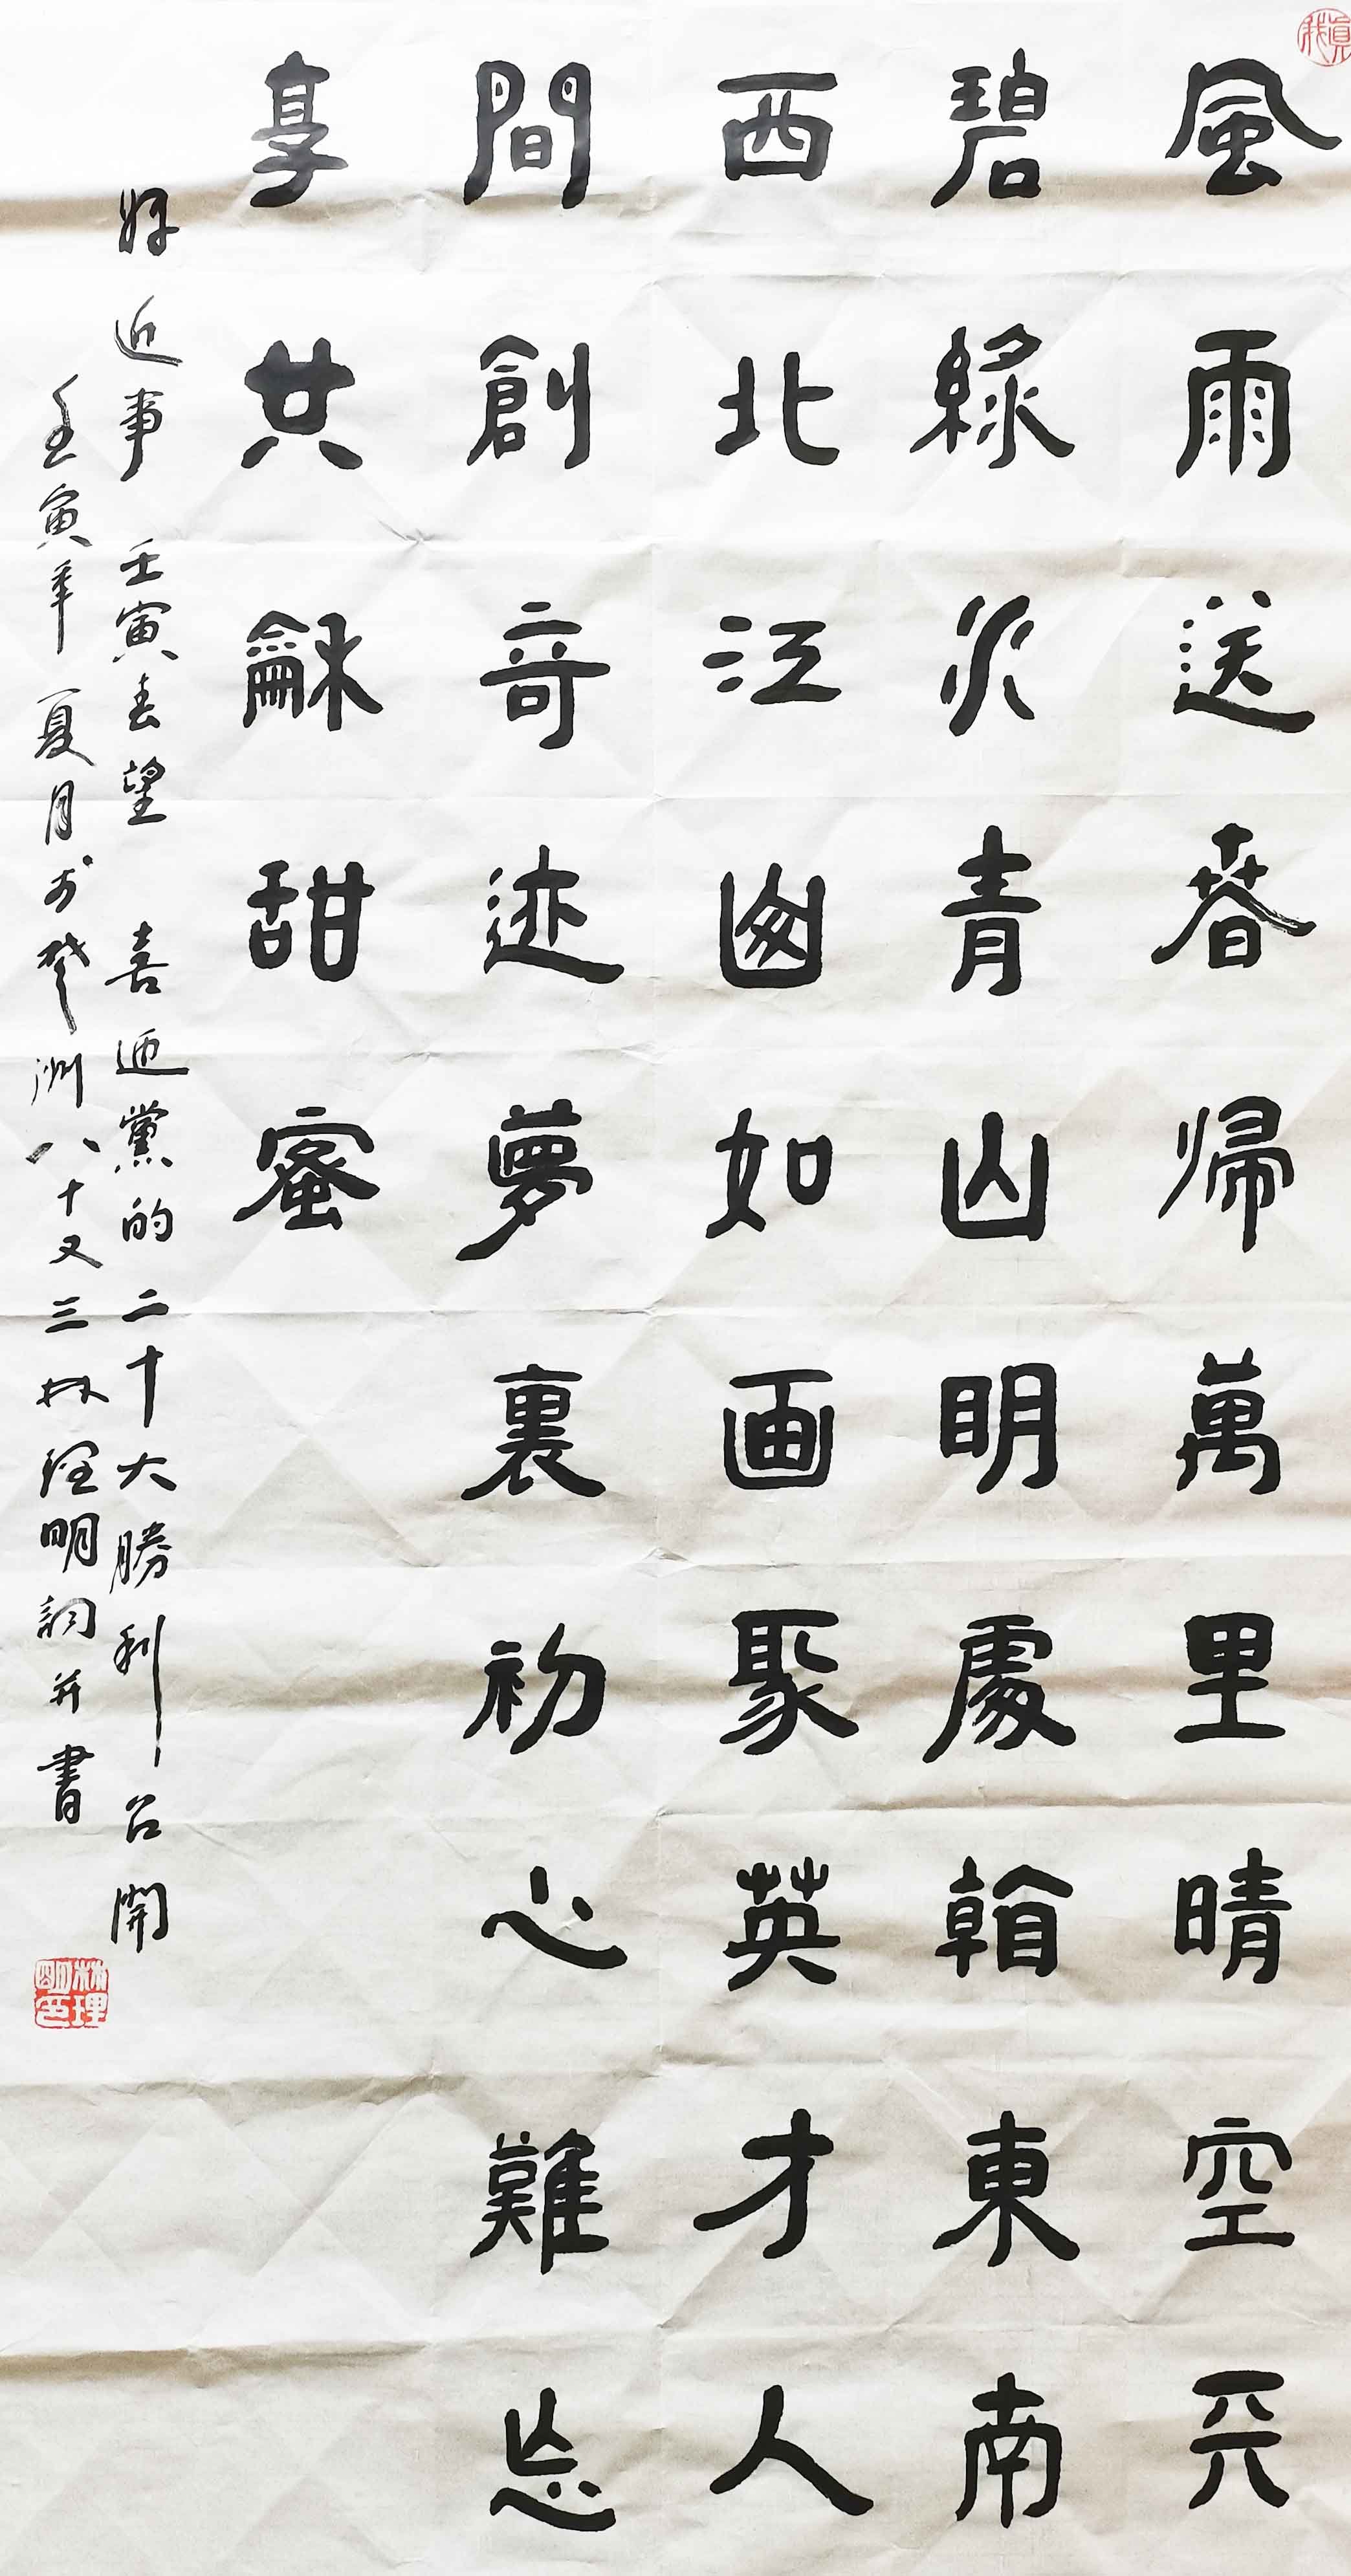 真我
風雨送春帰萬里晴空天
碧綠水青山明處翰東南
西北江山如画聚英才人
間創奇迹夢裏初心難忘
享共龢甜蜜
好近事 壬寅春望 喜迎黨的二十大勝利召開
壬寅年夏月於洲八十又三林理明詞并書
林理明印